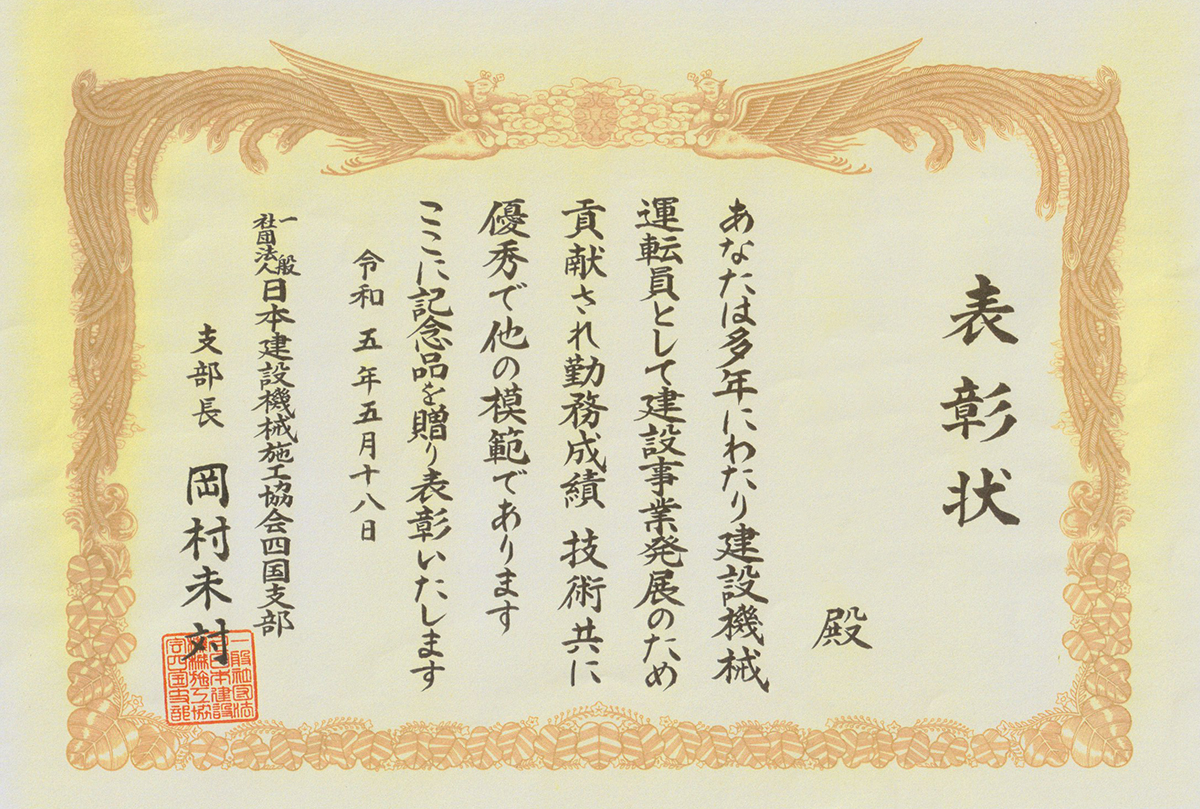 表彰状
殿
あなたは多年にわたり建設機械
運転員として建設事業発展のため
貢献され勤務成績 技術共に
優秀で他の模範であります
ここに記念品を贈り表彰いたします
令和五年五月十八日
一般社団法人日本建設機械施工協会四国支部
支部長 岡村未対
一般社団法
人日本建設
機械施工協
会四国支部